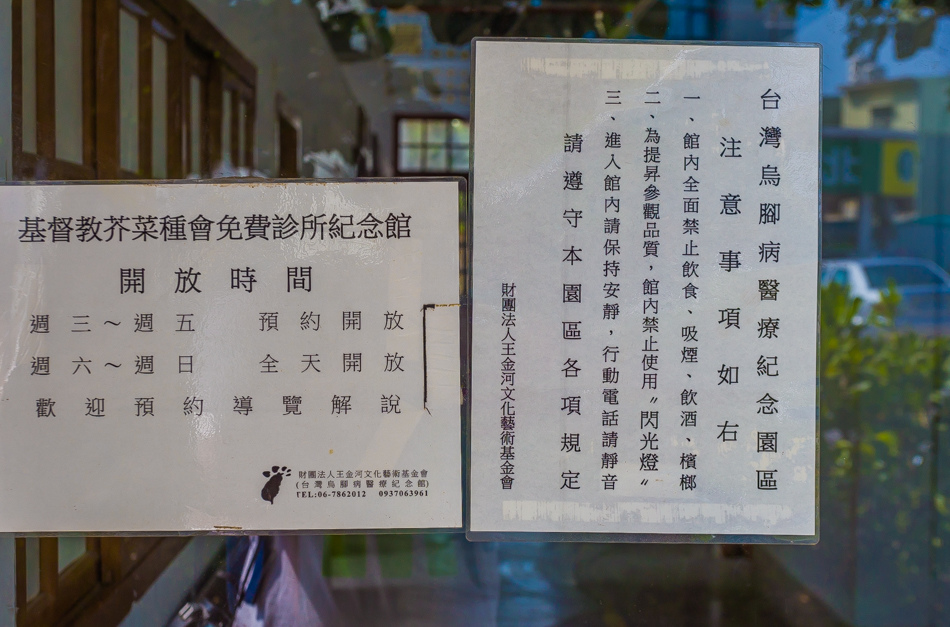 基督教芥菜種會免費診所紀念館
開放時間
週三～週五 預約開放
週六～週日 全天開放
歡迎預約導覽解說
財團法人王金河文化藝術基金會
(台灣烏腳病醫療紀念館)
TEL:06-7862012 0937063961
台灣烏腳病醫療紀念園區
注意事項如右
一、館內全面禁止飲食、吸煙、飲酒、檳榔
二、為提昇參觀品質，館內禁止使用〝閃光燈〞
三、進入館內請保持安靜，行動電話請靜音
請遵守本園區各項規定
財團法人王金河文化藝術基金會